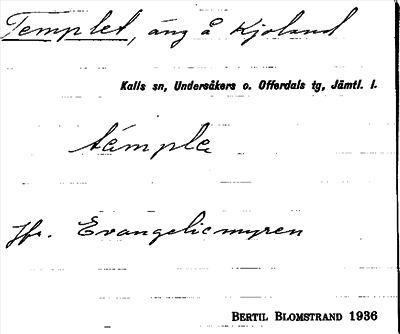 Templet, äng å Kjoland
Kalls sn, Undersåkers o. Offerdals tg, Jämtl. l.
támplɐ
Jfr. Evangeliemyren
BERTIL BLOMSTRAND 1936